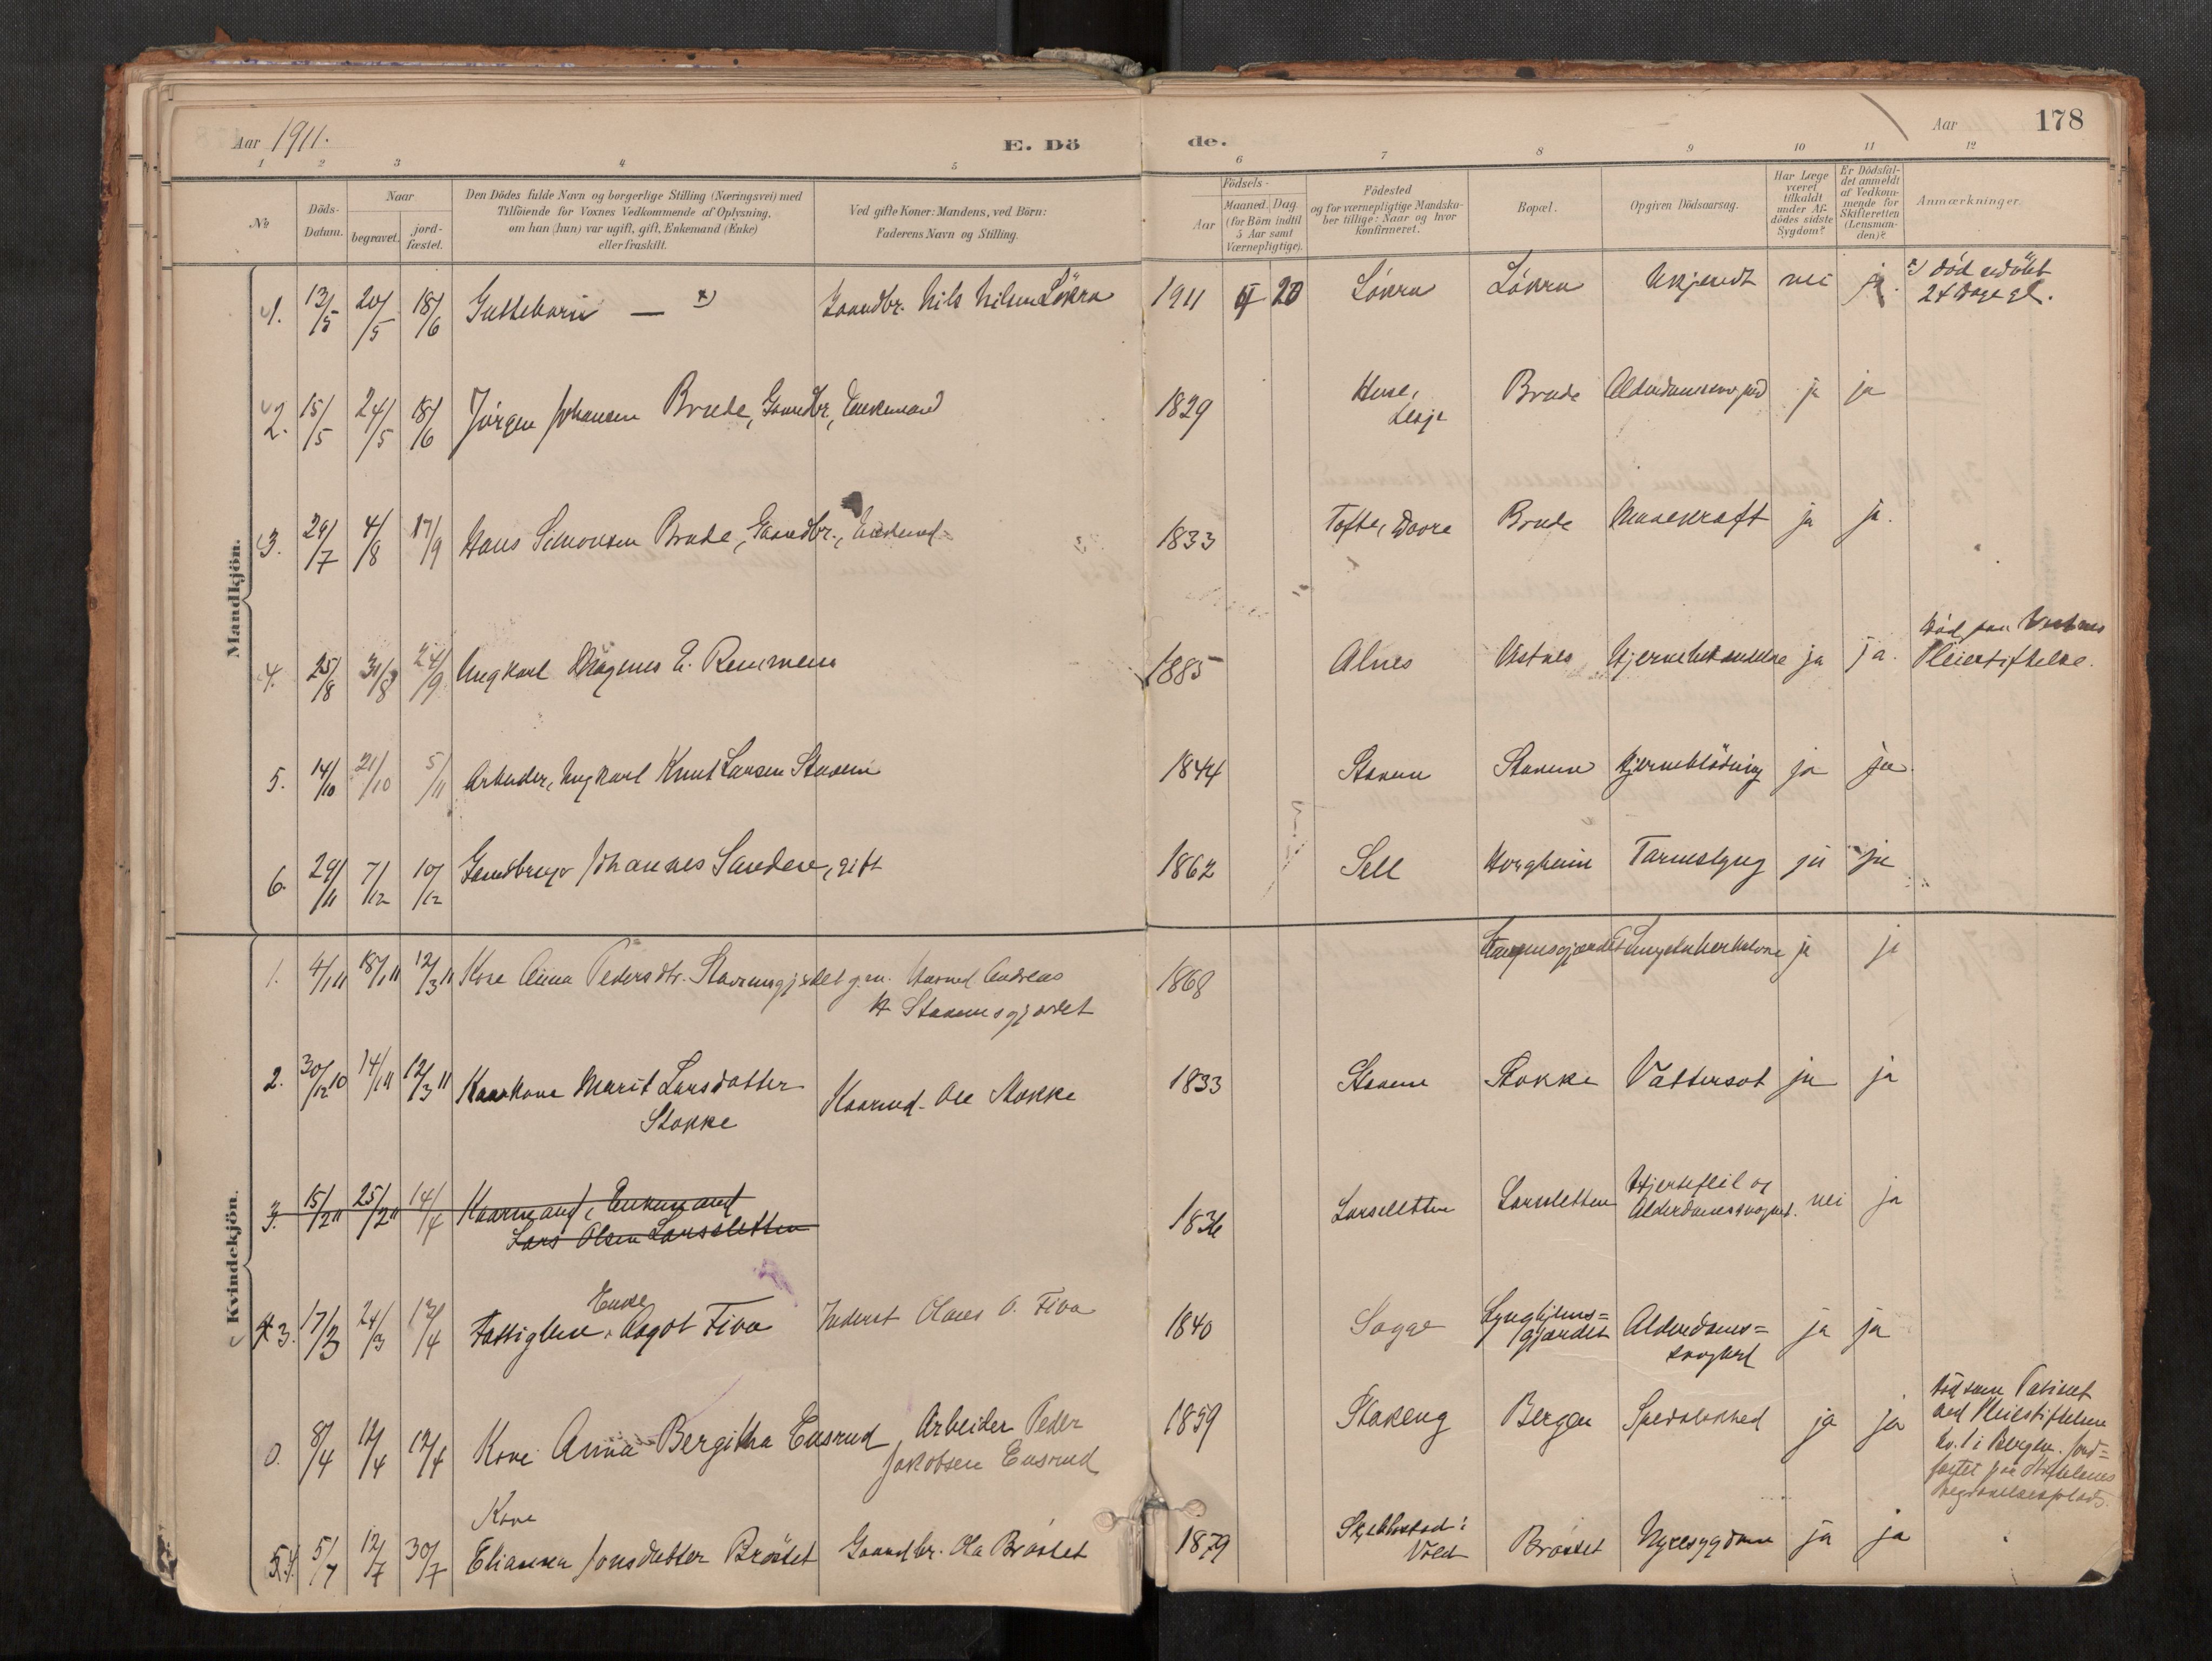 Aar 1911.
E. Dö
de.
Aar
178
1 2 3 4 5 6 7 8 9 10 11 12
No
Döds-Datum.
Naar
begravet.
jord-fæstet.
Den Dödes fulde Navn og borgerlige Stilling (Næringsvei) med
Tilföiende for Voxnes Vedkommende af Oplysning,
om han (hun) var ugift, gift, Enkemand (Enke)
eller fraskilt.
Ved gifte Koner: Mandens, ved Börn:
Faderens Navn og Stilling.
Födsels-
Aar
Maaned. Dag.
(for Börn indtil
5 Aar samt
Værnepligtige).
Födested
og for værnepligtige Mandska-
ber tillige: Naar og hvor
konfirmeret.
Bopæl.
Opgiven Dödsaarsag.
Har Læge
været
tilkaldt
under Af-
dödes sidste
Sygdom?
Er Dödsfal-
det anmeldt
af Vedkom-
mende for
Skifteretten
(Lensman-
den)?
Anmærkninger.
Mandkjön.
1. 13/5 20/5 18/6 Guttebarn — x) Gaardbr. Nils Nilsen Lökra 1911 4 20 Lökra Lökra Ukjendt nei ja. x) död udöbt
24 Dage gl.
2. 15/5 24/5 18/6 Jörgen Johansen Brude, Gaardbr, Enkemand 1829 Lesje Brude ja ja
3. 29/7 4/8 17/9 Hans Simonsen Brude, Gaardbr., 1833 Tofte, Dovre Brude Mavekræft ja ja.
4. 25/8 31/8 24/9 Ungkarl Magnus E. Remmem 1885 Alnes ja ja. Död paa
Pleiestiftelse.
5. 14/10 21/10 5/11 Arbeider, Ungkarl Knut Larsen Stavem 1844 Stavem Stavem Hjerneblödning ja ja
6. 29/11 7/12 10/12 Gaardbruger Johannes Sandere, gift 1862 Sell Horgheim Tarmslyng ja ja
Kvindekjön.
1. 4/1 11 18/1 11 12/3 11 Kone Anna Pedersdtr. Stavemsgjærdet g.m. Andreas
Stavemsgjærdet 1868 Stavemsgjærdet Lungetuberkulose ja ja
2. 30/12 10 14/1 11 12/3 11 Kaarkone Marit Larsdatter
Stokke Kaarmd. Ole Stokke 1833 Stavem Stokke Vattersot ja ja
3. 15/2 11 25/2 11 14/4 Kaarmand, Enkemand
Lars Olsen Larssletten 1836 Larssletten Larssletten Hjertefeil og
nei ja
4 3. 17/3 24/3 17/4 Enke
Aagot Fiva Inderst Olaus O. Fiva 1840 Sogge Lyngheims=
gjærdet Alderdoms=
ja ja
0. 8/4 12/4 12/4 Kone Anna Bergitha Ensrud, Arbeider Peder
Jakobsen Ensrud 1859 Stakeng Bergen Spedalskhed ja ja Död som Patient
ved Pleiestiftelsen
No. 1 i Bergen. Jord=
fæstet paa Stiftelsens
Begravelsesplads.
5 4. 5/7 12/7 30/7 Kone
Elianna Jonsdatter Bröstet Gaardbr. Ola Bröstet 1879 Skjelbostad i
Vold Bröstet Nyresygdom ja ja